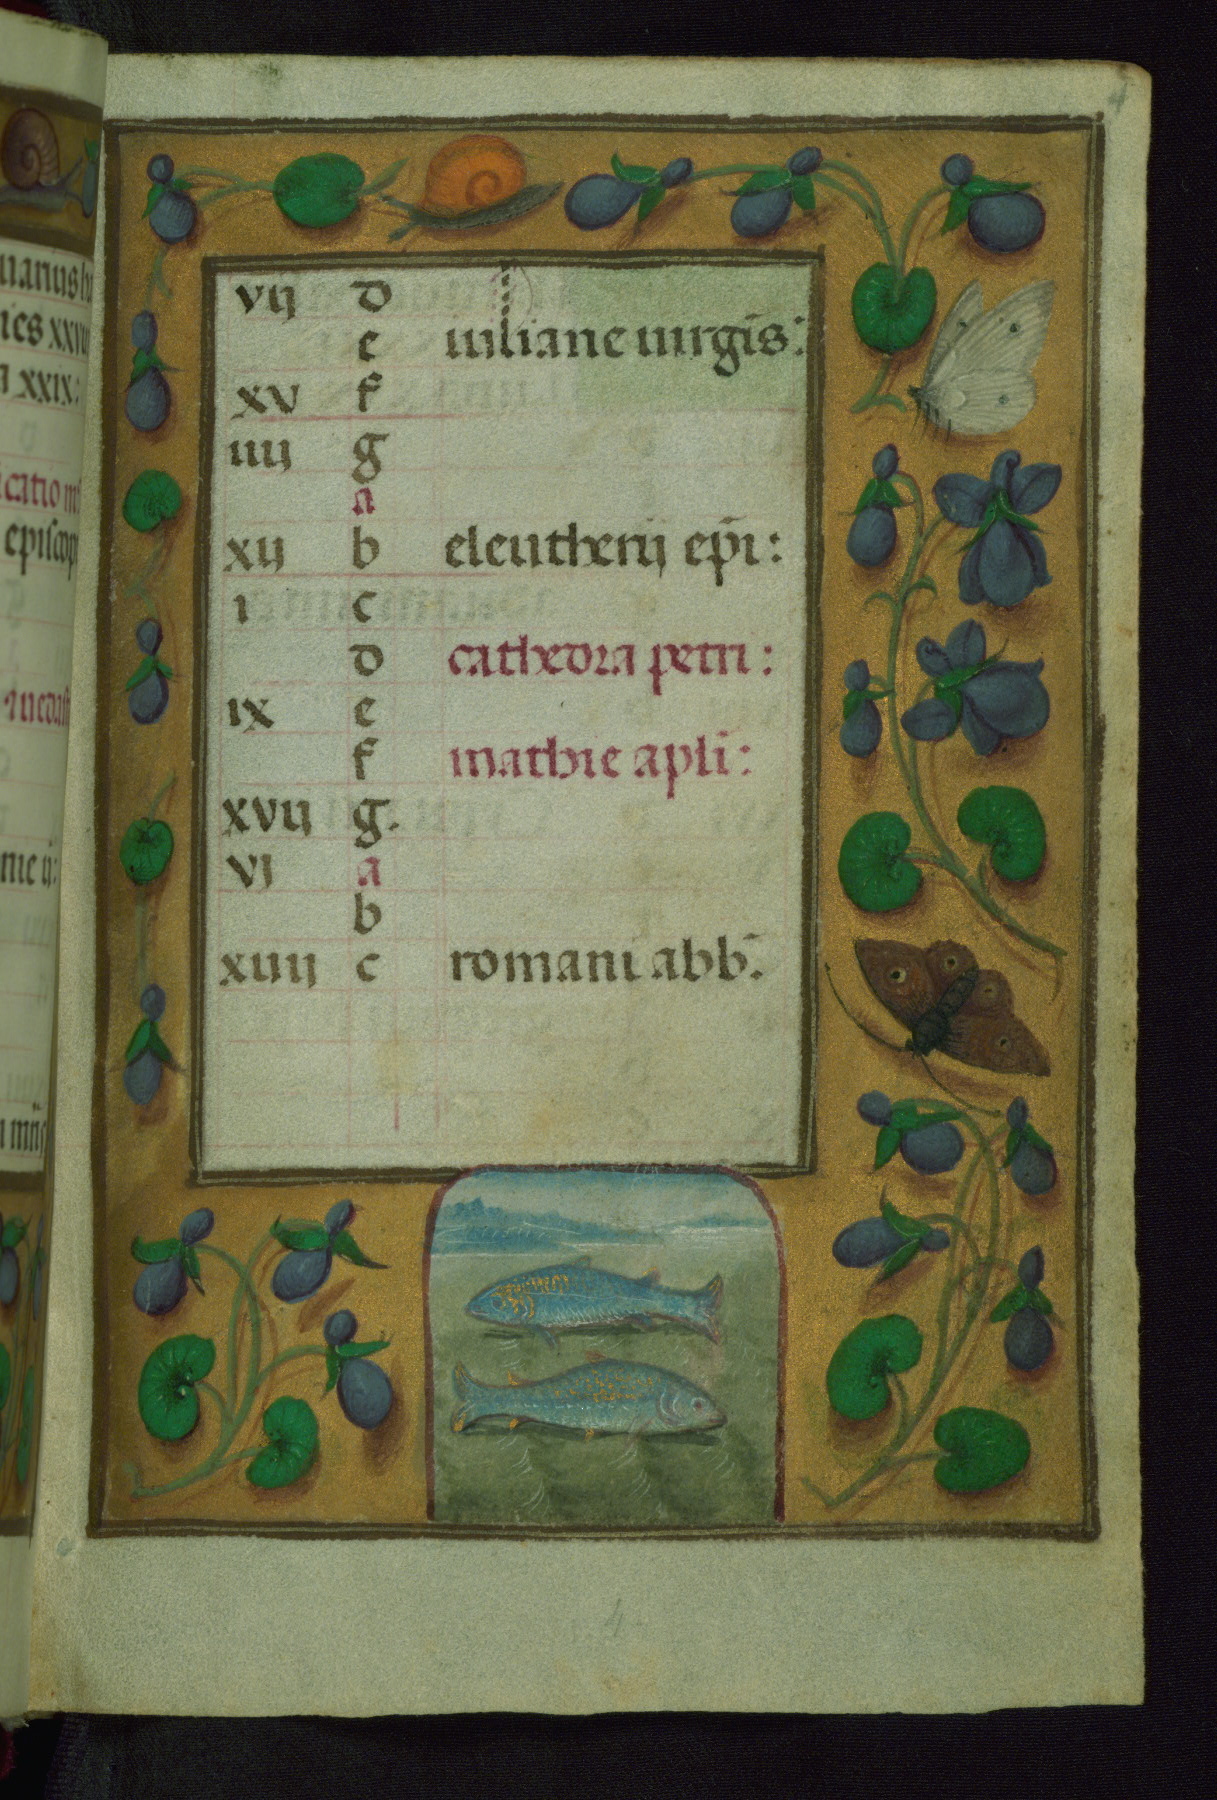 uarius h
ies xxvi
i xxix:
catio m
episcop
vedast
nie ij:
4
vij d
e iuliane uirgis:
xv f
iiij g
a
xij b eleutherij epi:
i c
d cathedra petri :
ix e
f mathie apli :
xvij g.
vi a
b
xiiij c romani abb.
4